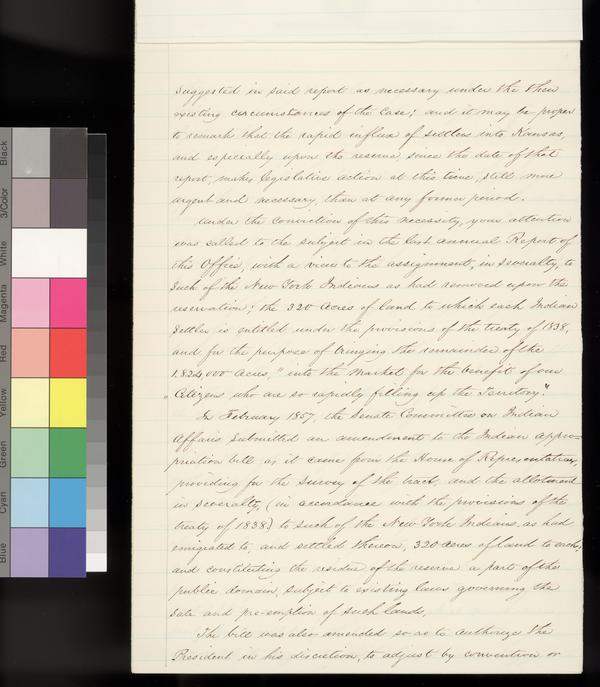 Suggested in said report as necessary under the then
existing circumstances of the Case; and it may be proper
to remark that the rapid influx of settlers into Kansas,
and especially upon the reserve, since the date of that
report, makes legislative action at this time, still more
urgent and necessary, than at any former period.
Under the conviction of this necessity, your attention
was called to the subject in the last annual Report of
this Office, with a view to the assignment, in severalty, to
such of the New York Indians as had removed upon the
reservation; the 320 acres of land to which each Indian
Settler is entitled under the provisions of the treaty of 1838,
and for the purpose of bringing the remainder of the
1.824,000 acres, "into the market for the benefit of our
"Citizens who are so rapidly filling up the Territory."
In February 1857, the Senate Committee on Indian
Affairs submitted an amendment to the Indian appro-
priation bill as it came from the House of Representatives,
providing for the survey of the tract, and the allotment
in severalty, (in accordance with the provisions of the
treaty of 1838) to such of the New York Indians, as had
emigrated to, and settled thereon, 320 acres of land to each,
and constituting the residue of the reserve a part of the
public domain, subject to existing laws governing the
sale and pre-emption of such lands.
The bill was also amended so as to authorize the
President in his discretion, to adjust by convention or
Black
3/Color
White
Magenta
Red
Yellow
Green
Cyan
Blue